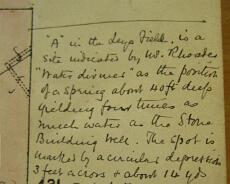 "A" in the Leys Field. is a
site indicated by Mr. Rhoades
"Water diviner" as the position
of a Spring about 40ft deep
yielding four times as
much water as the Stone
Building Well. The spot is
marked by a circular depression
3 feet across & about 14 yds